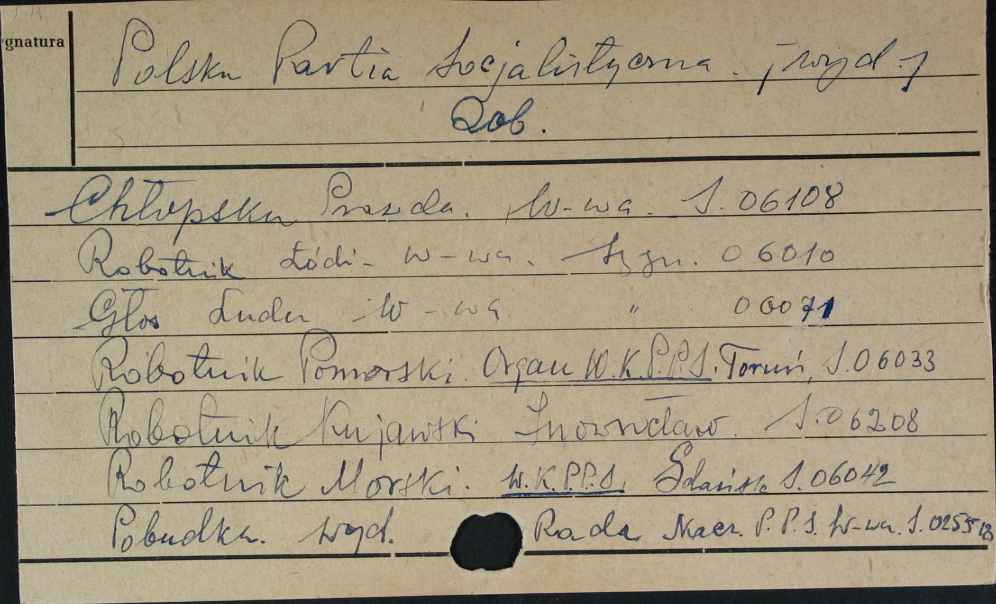 gnatura
Polska Partia Socjalistyczna. [wyd.]
Zob.
Chłopska Prawda. W-wa. S. 06108
Robotnik Łódź - W-wa. Sygn. 06010
Głos Ludu W-wa " 00071
Robotnik Pomorski. Organ W.K.P.P.S. Toruń, S. 06033
Robotnik Kujawski Inowrocław. S. 06208
Robotnik Morski. W.K.P.P.S. Gdańsk S. 06042
Pobudka. wyd. Rada Nacz. P.P.S. W-wa. S.